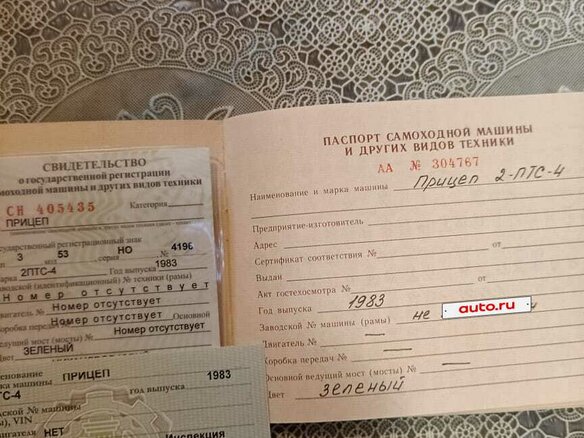 СВИДЕТЕЛЬСТВО
о государственной регистрации
самоходной машины и других видов техники
СН 405435 Категория
ПРИЦЕП
государственный регистрационный знак
3 53 НО 4196
код серия №
марка 2ПТС-4 Год выпуска 1983
заводской (идентификационный) № техники (рамы)
Номер отсутствует
двигатель № Номер отсутствует
Коробка передач № Номер отсутствует Основной
ведущий мост (мосты) № Номер отсутствует
цвет ЗЕЛЕНЫЙ
ПРИЦЕП 1983
машины год выпуска
ПТС-4
заводской № машины
), VIN
двигателя НЕТ Инспекция
ПАСПОРТ САМОХОДНОЙ МАШИНЫ
И ДРУГИХ ВИДОВ ТЕХНИКИ
АА № 304767
Наименование и марка машины Прицеп 2-ПТС-4
Предприятие-изготовитель
Адрес
Сертификат соответствия № от
Выдан
Акт гостехосмотра № от
Год выпуска 1983
auto.ru
Заводской № машины (рамы) не
Двигатель № —
Коробка передач № —
Основной ведущий мост (мосты) № —
Цвет зеленый